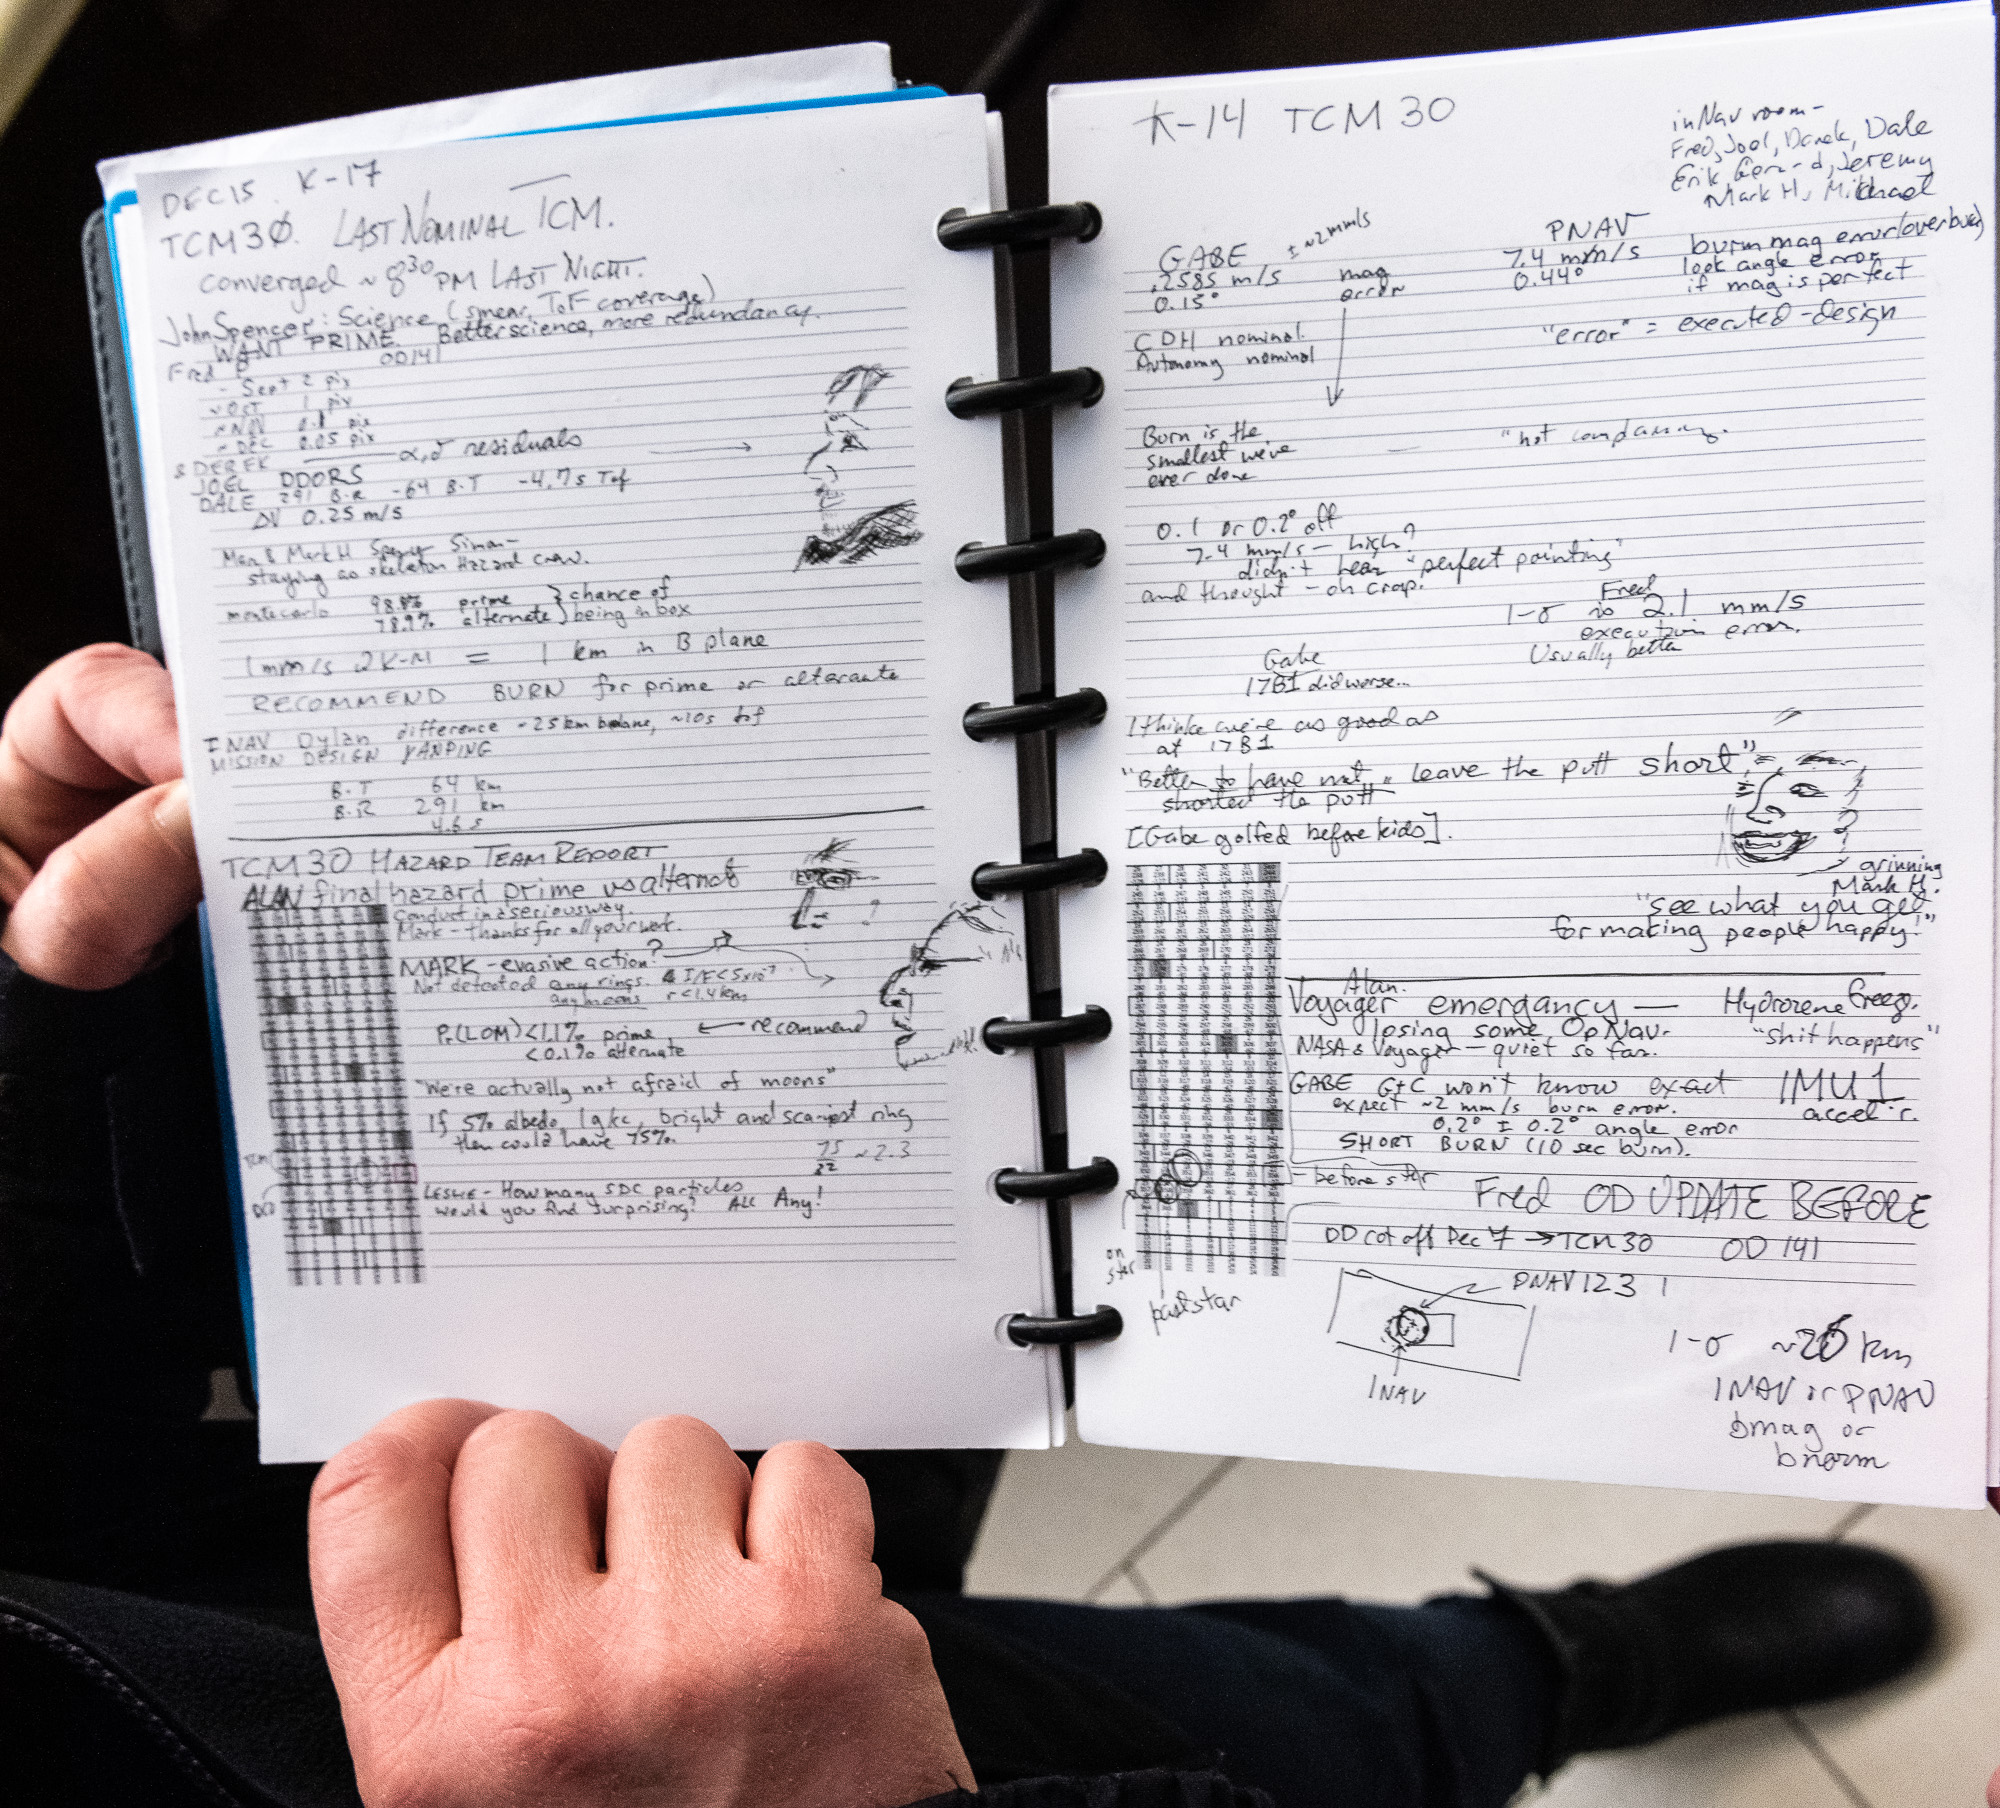 DEC 15 K-17
TCM 30. LAST NOMINAL TCM.
converged ~ 8³⁰ PM LAST NIGHT.
John Spencer: Science (smear, ToF coverage)
WANT PRIME. Better science, more redundancy.
Fred P OD141
- Sept 2 pix
~ Oct 1 pix
~ NOV 0.1 pix
~ DEC 0.05 pix
& DEREK α,δ residuals
JOEL DDORS
DALE 291 B·R -64 B·T -4.7s Tof
ΔV 0.25 m/s
& Mark H Simon-
staying as skeleton Hazard crew.
montecarlo 98.8% prime } chance of
78.9% alternate } being in box
1 mm/s = 1 km in B plane
RECOMMEND BURN for prime or alternate
INAV Dylan difference ~25 km bplane, ~10s tof
MISSION DESIGN YANPING
B·T 64 km
B·R 291 km
4.6 s
TCM30 HAZARD TEAM REPORT
ALAN final hazard prime vs alternat
Conduct in a serious way.
Mark - thanks for all your work.
MARK - evasive action?
Not detected any rings. I/F<5x10⁻⁷
any moons r<1.4 km
Pr(LOM) <1.1% prime ← recommend
<0.1% alternate
"We're actually not afraid of moons"
If 5% albedo, 1g/cc, bright and scariest ring
then could have 75%.
75/32 ~ 2.3
LESLIE - How many SDC particles
would you find surprising? ALL Any!
K-14 TCM 30
in Nav room -
Fred, Joel, Derek, Dale
Erik, Gerard, Jeremy
Mark H, Michael
GABE ± ~2 mm/s PNAV
.2585 m/s mag 7.4 mm/s burn mag error (overburn)
0.15° error 0.44° look angle error
if mag is perfect
CDH nominal. "error" = executed - design
Autonomy nominal
Burn is the
smallest we've
ever done
"not
0.1 or 0.2° off
7.4 mm/s - high?
didn't hear "perfect pointing"
and thought - oh crap.
Fred
1-σ is 2.1 mm/s
execution error.
Usually better
Gabe
17B1 did worse...
I think we're as good as
at 17B1
"Better to have not leave the putt short"
shorted the putt
[Gabe golfed before kids].
grinning
Mark H.
"see what you get
for making people happy!"
Alan.
Voyager emergancy — Hydrozene freeze.
losing some OpNav. "shit happens"
NASA & Voyager - quiet so far.
GABE G+C won't know exact IMU1
expect ~2 mm/s burn error.
0.2° ± 0.2° angle error
SHORT BURN (10 sec burn).
- before star
Fred OD UPDATE BEFORE
OD cut off Dec 7 → TCM30 OD 141
on
star
past star
PNAV 123
INAV
1-σ km
INAV or PNAV
bmag or
bnorm